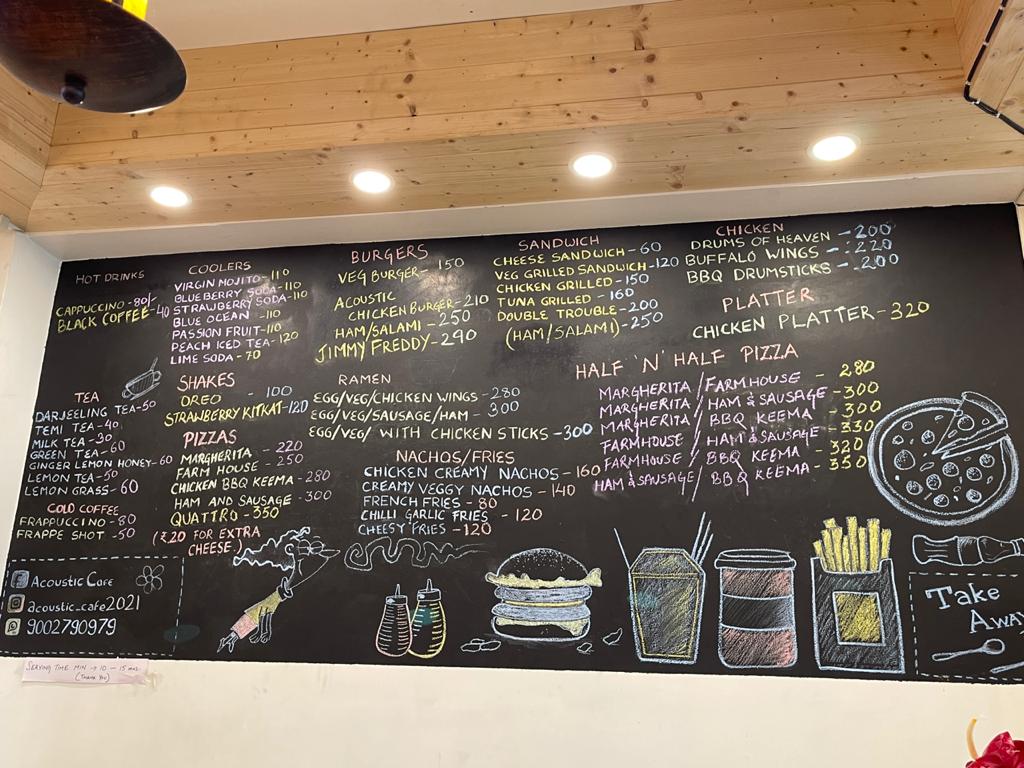 HOT DRINKS
CAPPUCCINO - 80/-
BLACK COFFEE - 40
TEA
DARJEELING TEA - 50
TEMI TEA - 40
MILK TEA - 30
GREEN TEA - 60
GINGER LEMON HONEY - 60
LEMON TEA - 50
LEMON GRASS - 60
COLD COFFEE
FRAPPUCCINO - 80
FRAPPE SHOT - 50
COOLERS
VIRGIN MOJITO - 110
BLUEBERRY SODA - 110
STRAWBERRY SODA - 110
BLUE OCEAN - 110
PASSION FRUIT - 110
PEACH ICED TEA - 120
LIME SODA - 70
SHAKES
OREO - 100
STRAWBERRY KITKAT - 120
PIZZAS
MARGHERITA - 220
FARM HOUSE - 250
CHICKEN BBQ KEEMA - 280
HAM AND SAUSAGE - 300
QUATTRO - 350
(₹20 FOR EXTRA
CHEESE)
BURGERS
VEG BURGER - 150
ACOUSTIC
CHICKEN BURGER - 210
HAM/SALAMI - 250
JIMMY FREDDY - 290
RAMEN
EGG/VEG/CHICKEN WINGS - 280
EGG/VEG/SAUSAGE/HAM - 300
EGG/VEG/ WITH CHICKEN STICKS - 300
NACHOS/FRIES
CHICKEN CREAMY NACHOS - 160
CREAMY VEGGY NACHOS - 140
FRENCH FRIES - 80
CHILLI GARLIC FRIES - 120
CHEESY FRIES - 120
SANDWICH
CHEESE SANDWICH - 60
VEG GRILLED SANDWICH - 120
CHICKEN GRILLED - 150
TUNA GRILLED - 160
DOUBLE TROUBLE - 200
(HAM/SALAMI) - 250
CHICKEN
DRUMS OF HEAVEN - 200
BUFFALO WINGS - 220
BBQ DRUMSTICKS - 200
PLATTER
CHICKEN PLATTER - 320
HALF 'N' HALF PIZZA
MARGHERITA / FARMHOUSE - 280
MARGHERITA / HAM & SAUSAGE - 300
MARGHERITA / BBQ KEEMA - 300
FARMHOUSE / HAM & SAUSAGE - 330
FARMHOUSE / BBQ KEEMA - 320
HAM & SAUSAGE / BBQ KEEMA - 350
Acoustic Cafe
acoustic_cafe2021
9002790979
Take
Away
SERVING TIME MIN → 10 - 15 mins.
(THANK YOU)